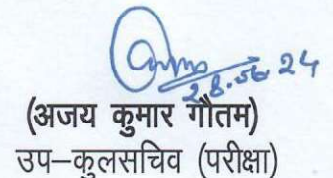 28.06.24
(अजय कुमार गौतम)
उप–कुलसचिव (परीक्षा)